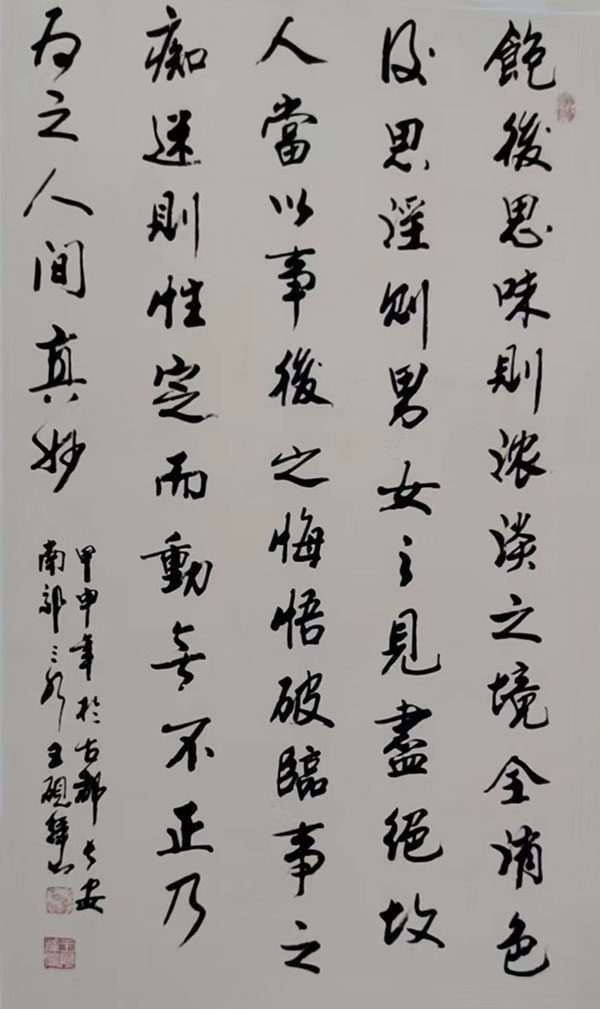 飽後思味則浓淡之境全消色
後思淫則男女之見盡絕故
人當以事後之悔悟破臨事之
痴迷則性定而動無不正乃
為之人间真妙
甲申年於古都长安
南郭王硯